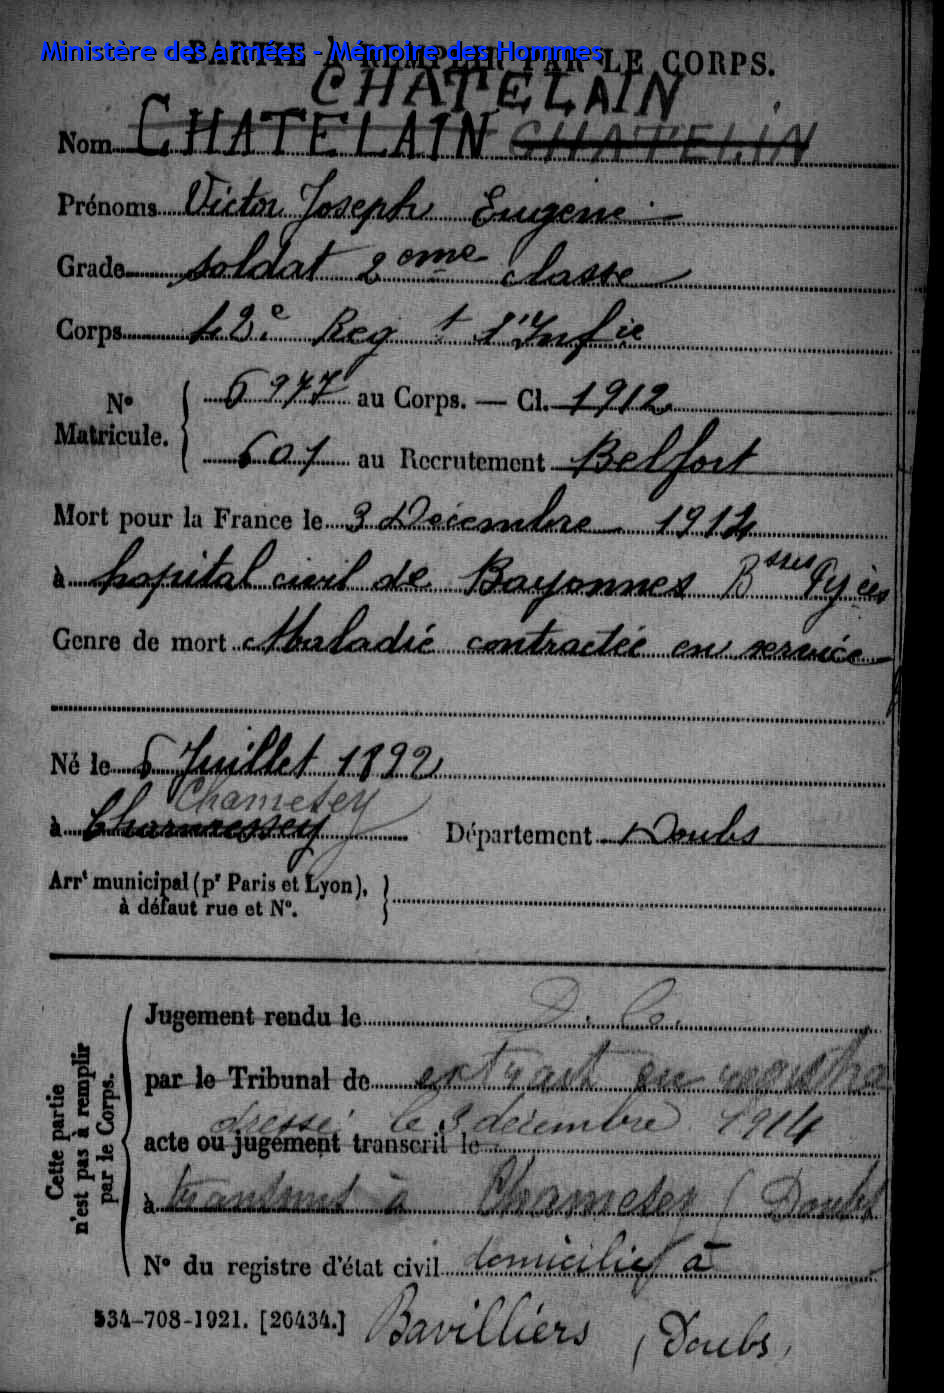 Ministère des armées - Mémoire des Hommes
PARTIE À REMPLIR PAR LE CORPS.
CHATELAIN
Nom CHATELAIN CHATELIN
Prénoms Victor Joseph Eugène
Grade soldat 2eme classe
Corps 42e Regt d'Infie
No Matricule. 6977 au Corps. — Cl. 1912
601 au Recrutement Belfort
Mort pour la France le 3 Décembre 1914
à hopital civil de Bayonnes Bsses Pyées
Genre de mort Maladie contractée en service
Né le 6 Juillet 1892
Chamesey
à Charmessey Département Doubs
Arrt municipal (pr Paris et Lyon),
à défaut rue et No.
Cette partie
n'est pas à remplir
par le Corps.
Jugement rendu le D. C.
par le Tribunal de extrait du registre
dressé le 3 décembre 1914
acte ou jugement transcrit le
à transmis à Chamesey (Doubs
No du registre d'état civil domicilié à
534-708-1921. [26434.] Bavilliers (Doubs)